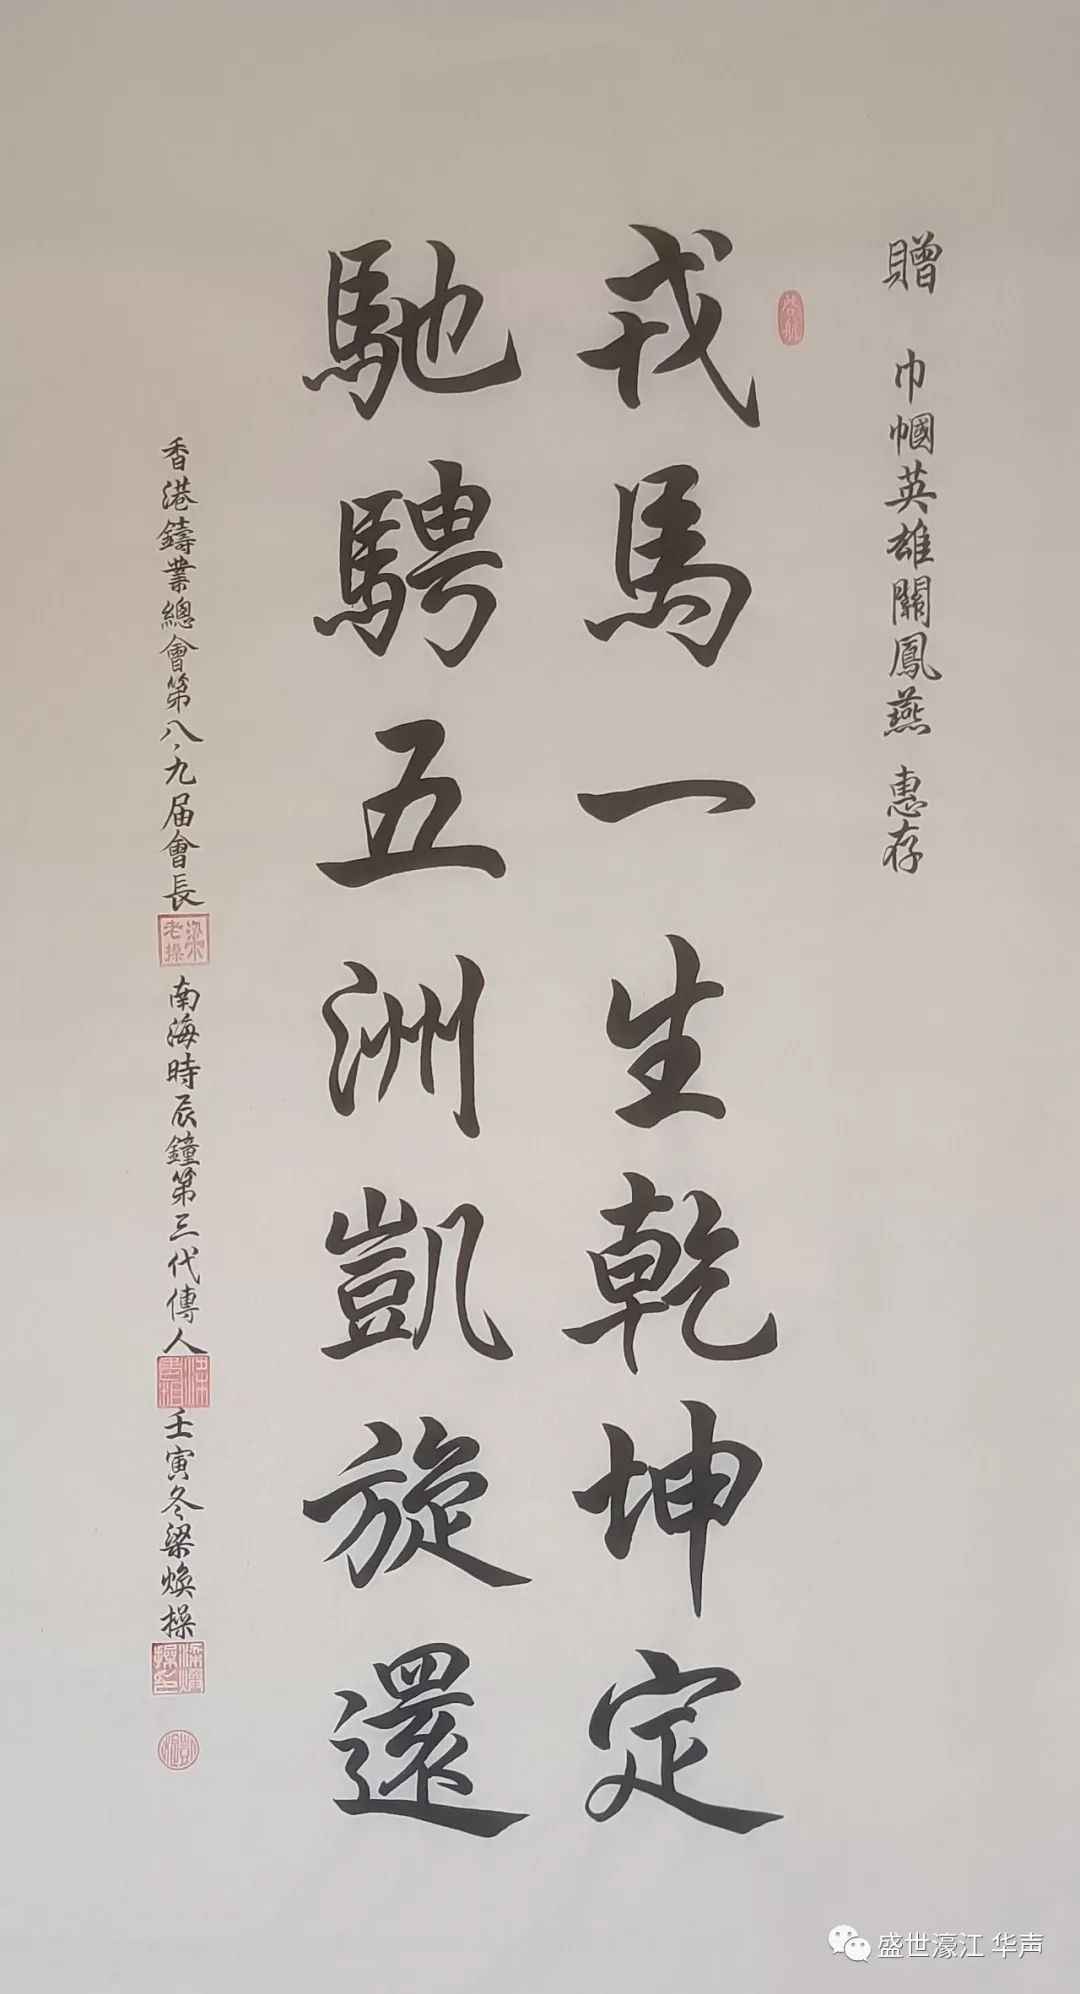 贈 巾幗英雄關鳳燕 惠存
啓航
戎馬一生乾坤定
馳騁五洲凱旋還
香港鑄業總會第八、九届會長
梁老操
南海時辰鐘第三代傳人
壬寅冬梁焕操
盛世濠江 华声